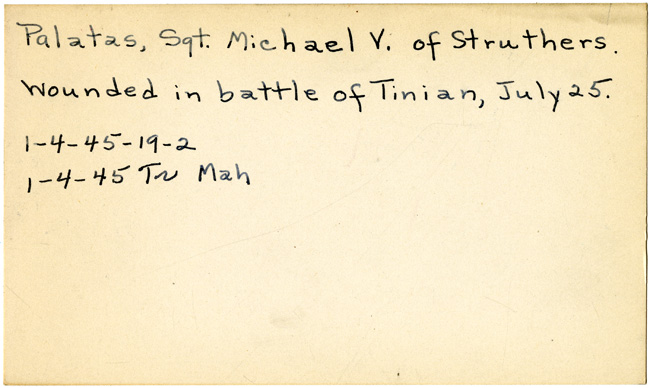 Palatas, Sgt. Michael V. of Struthers.
Wounded in battle of Tinian, July 25.
1-4-45-19-2
1-4-45 Tr Mah